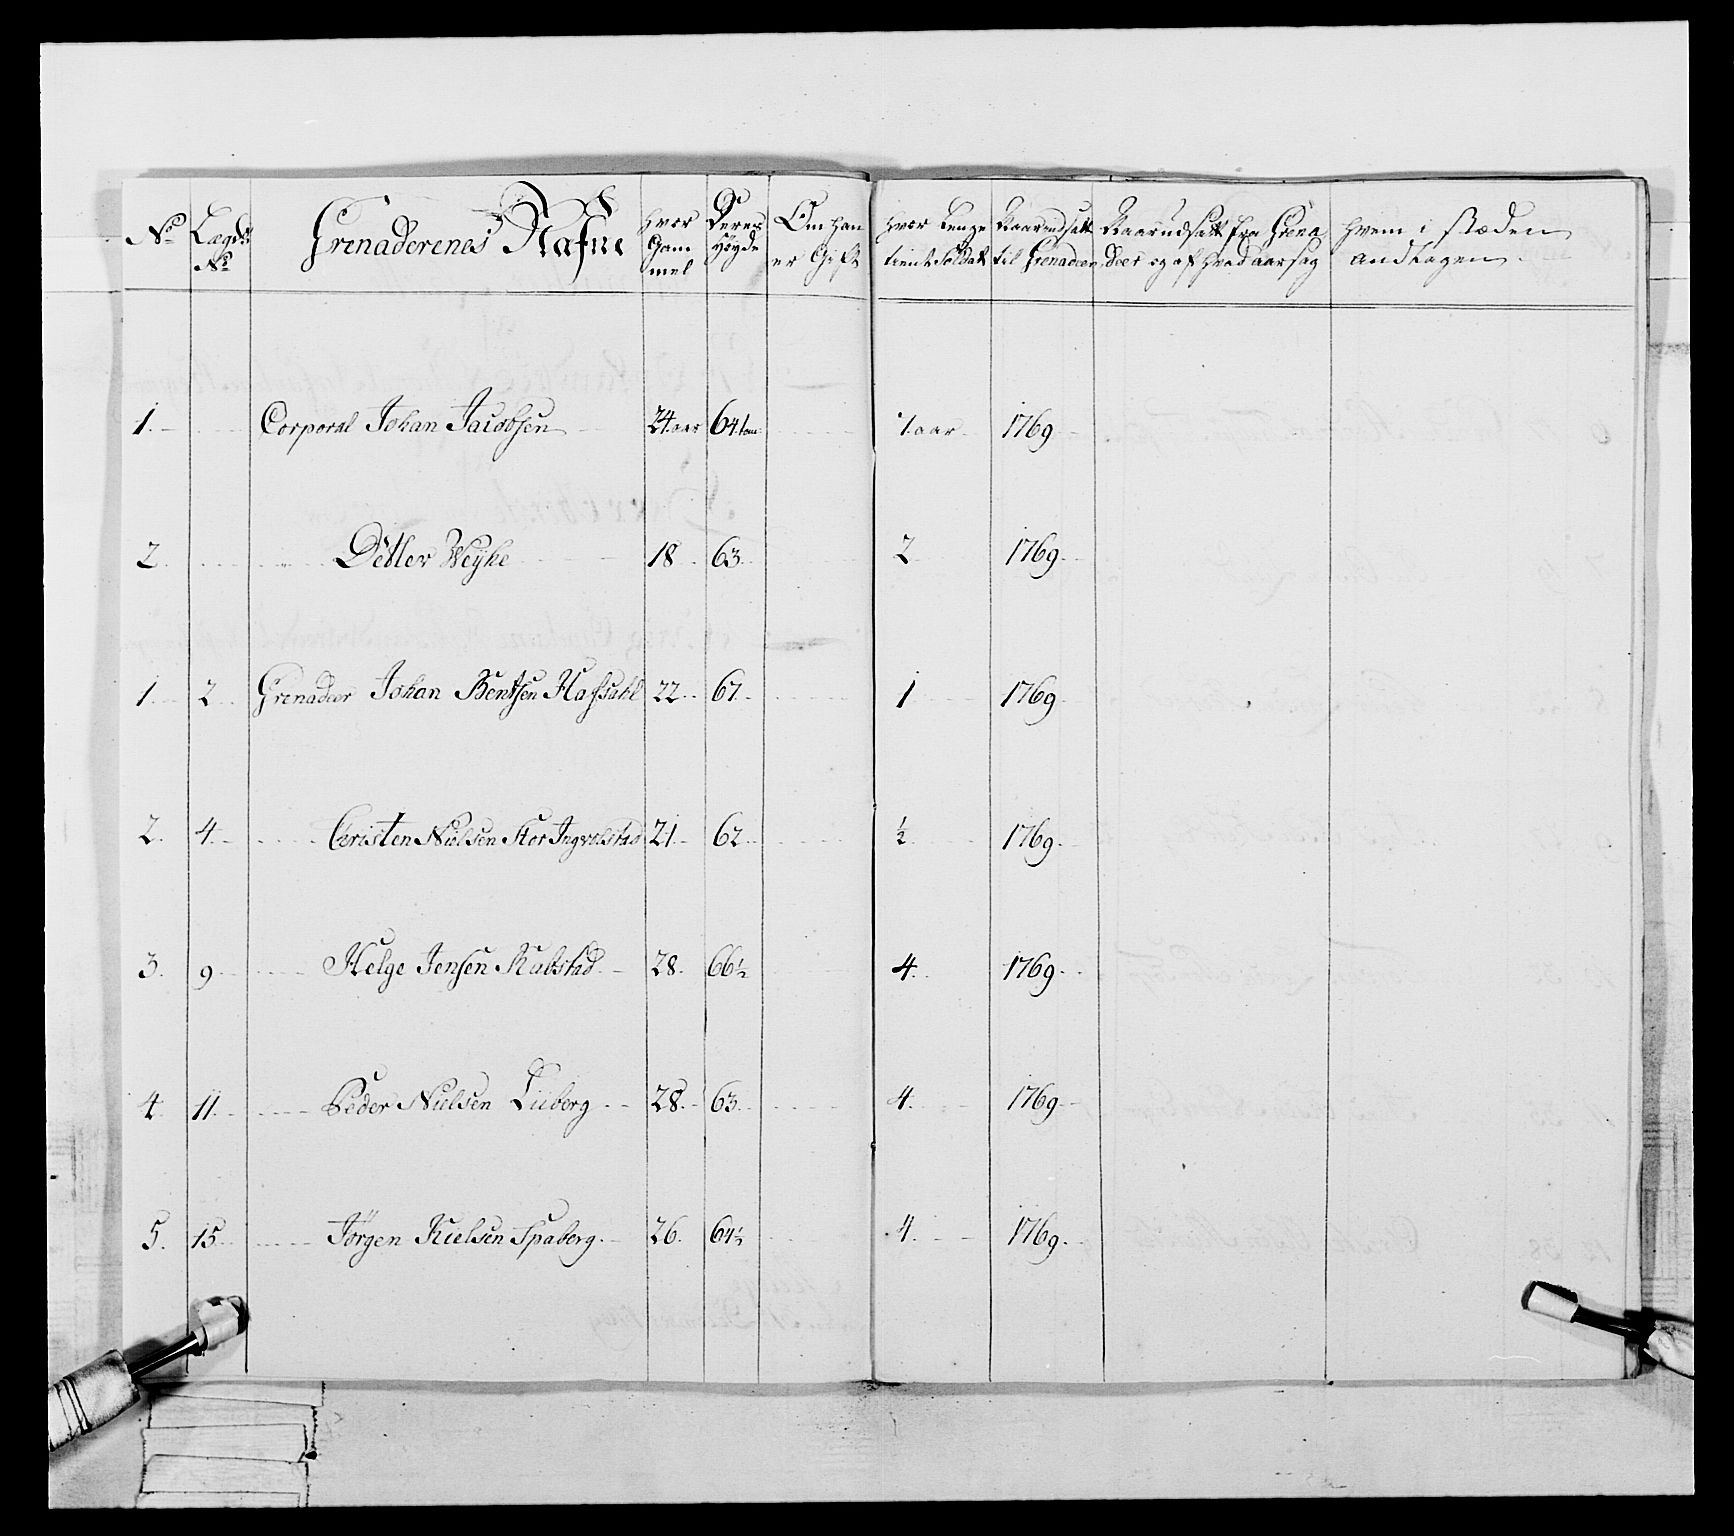 No Lægds No Grenaderenes Nafne hvor Gam mel Deres høyde Om han er Gift hvor lenge tient Soldat Naar udsatt til Grenadeer Naar udsatt fra Grena deer og af hvad aarsag hvem i stæden andtagen
1. Corporal Johan Jacobsen 24 aar 64 tom 7 aar 1769
2. Detler Weyhe 18 63 2 1769
1. 2 Grenadeer Johan Bentsen Hafsahl 22 67 1 1769
2. 4 Christen Nielsen Stor Ingvolstad 21 62 ½ 1769
3. 9 Helge Jensen Rabstad 28 66½ 4 1769
4. 11 Peder Nielsen Luberg 28 63 4 1769
5. 15 Jörgen Nielsen Spaberg 26 64½ 4 1769